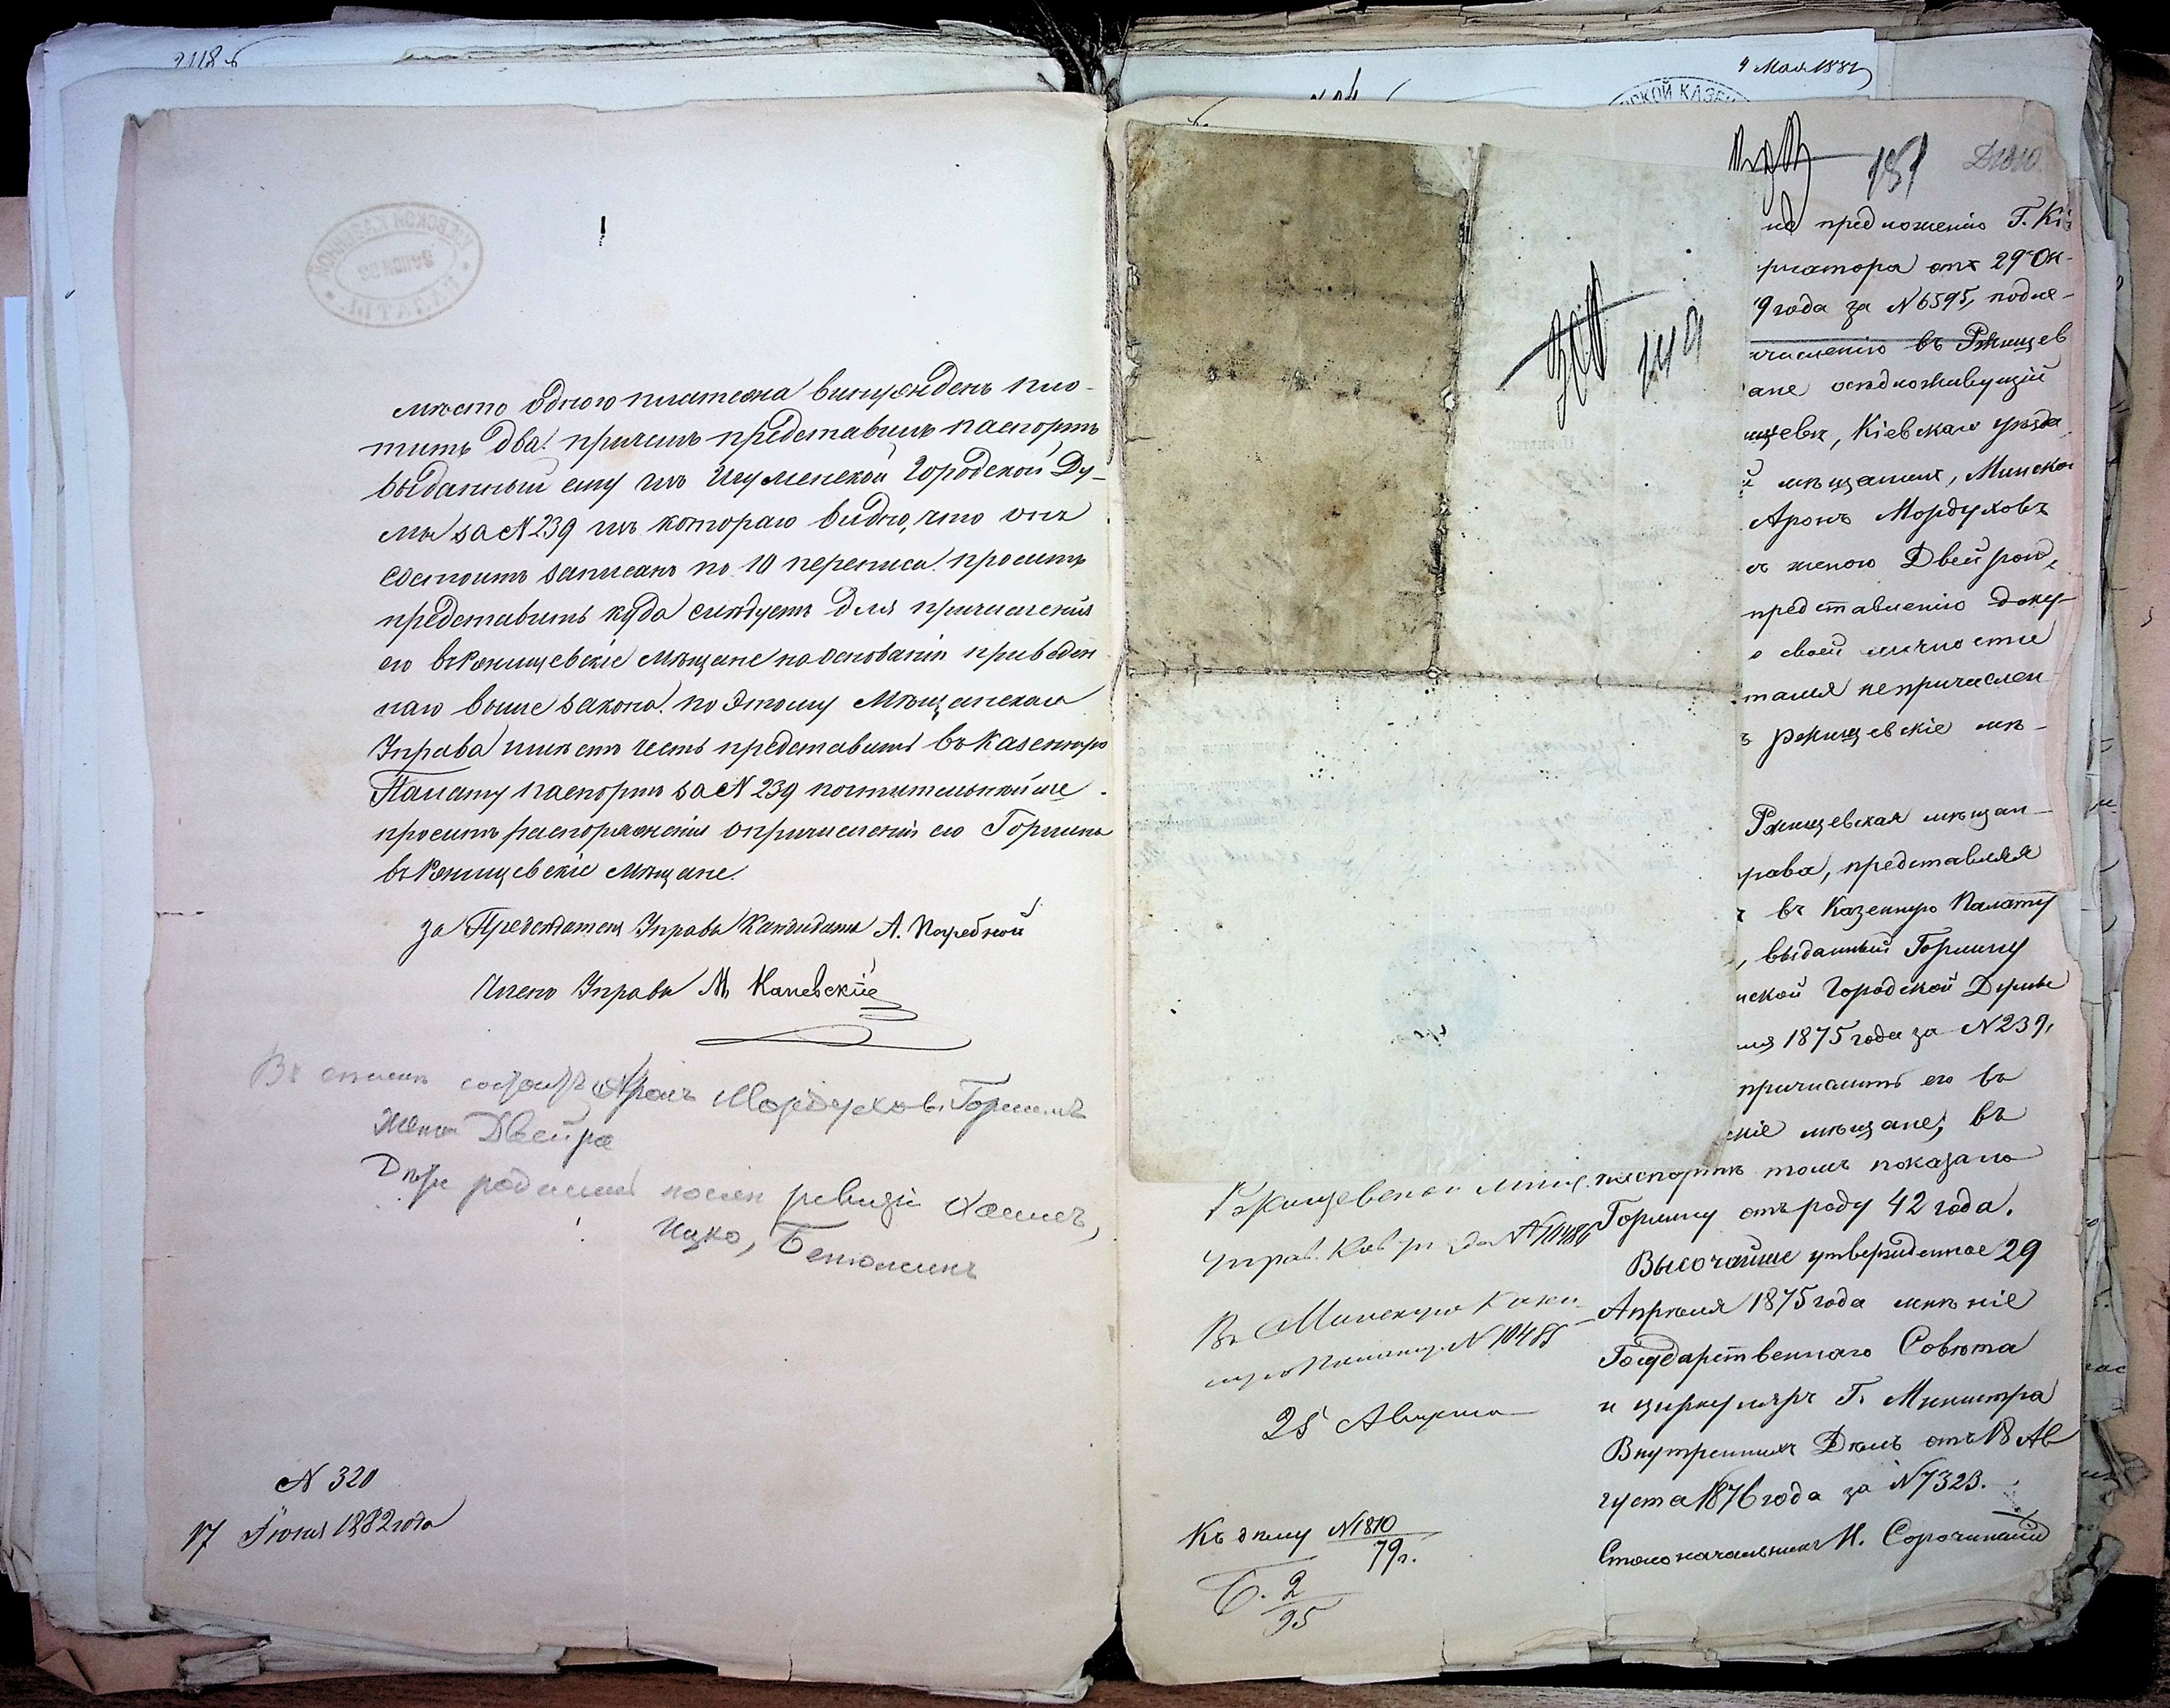 4 Мая 1882
181
Д1810
мѣсто одного платежа вынужденъ пла-
тить два. причемъ представилъ паспортъ
выданный ему изъ Игуменской Городской Ду-
мы за № 239 изъ котораго видно, что онъ
состоитъ записанъ по 10 переписи. проситъ
представить куда слѣдуетъ для причисленія
его въ Ржищевскіе Мѣщане на основаніи приведен
наго выше закона. по этому Мѣщанская
Управа имѣетъ честь представить въ Казенную
Палату паспортъ за № 239 почтительнѣйше
проситъ распоряженія о причисленіи его Горшина
въ Ржищевскіе Мѣщане.
за Предсѣдателя Управы Кандидатъ А. Погребной
Членъ Управы М Каневскій
Въ описи состоитъ Аронъ Мордухов. Горшинъ
Жена Двейра
Дѣти родились послѣ ревизіи Хаимъ,
Ицко, Беньоминъ
№ 320
17 Іюня 1882 года
предложенію Г. Кіе
рнатора отъ 29 Ок-
9 года за № 6595, подле-
ичисленію въ Ржищев
ане осѣдложивущій
ищевѣ, Кіевскаго уѣзда
й мѣщанинъ, Минской
Аронъ Мордуховъ
съ женою Двейрою,
представленію доку-
о своей личности
тался не причислен
ъ Ржищевскіе мѣ-
Ржищевская мѣщан-
рава, представляя
въ Казенную Палату
, выданный Горшину
нской Городской Думы
1875 года за № 239,
причислить его въ
скіе мѣщане; въ
паспортѣ томъ показано
Горшину отъ роду 42 года.
Высочайше утвержденное 29
Апрѣля 1875 года мнѣніе
Государственнаго Совѣта
и циркуляръ Г. Министра
Внутреннихъ Дѣлъ отъ 18 Ав
густа 1876 года за № 7323.
Столоначальникъ И. Сорочинскій
Ржищевской мѣщ.
управ. Кіев. у. за № 10484
Въ Минскую Казен-
ную Палату. № 10485
25 Августа
Къ дѣлу № 1810
79 г.
Б. 2
95